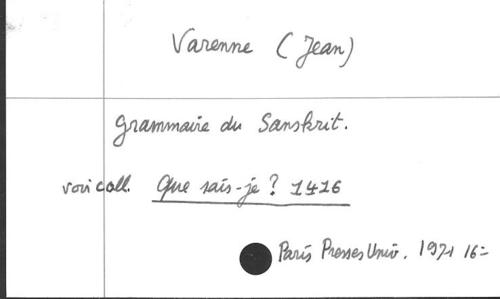 Varenne (Jean)
Grammaire du Sanskrit.
voir coll. Que sais-je ? 1416
Paris Presses Univ. 1971 16=